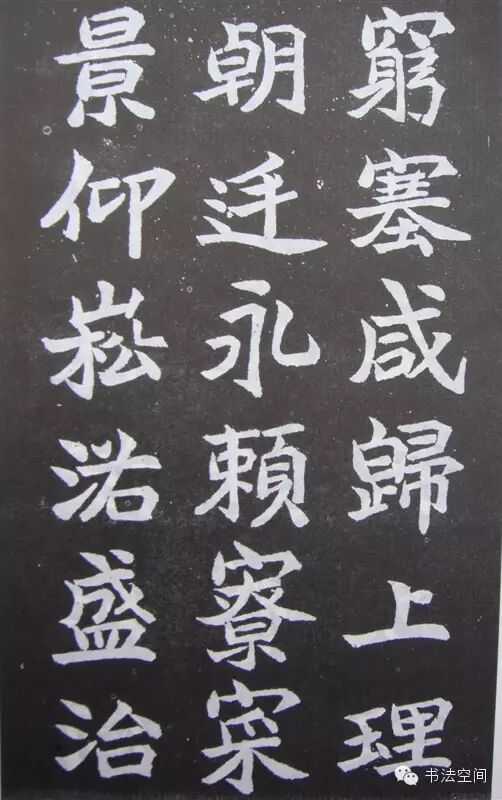 窮塞咸歸上理
朝迋永賴寮寀
景仰崧渃盛治
书法空间